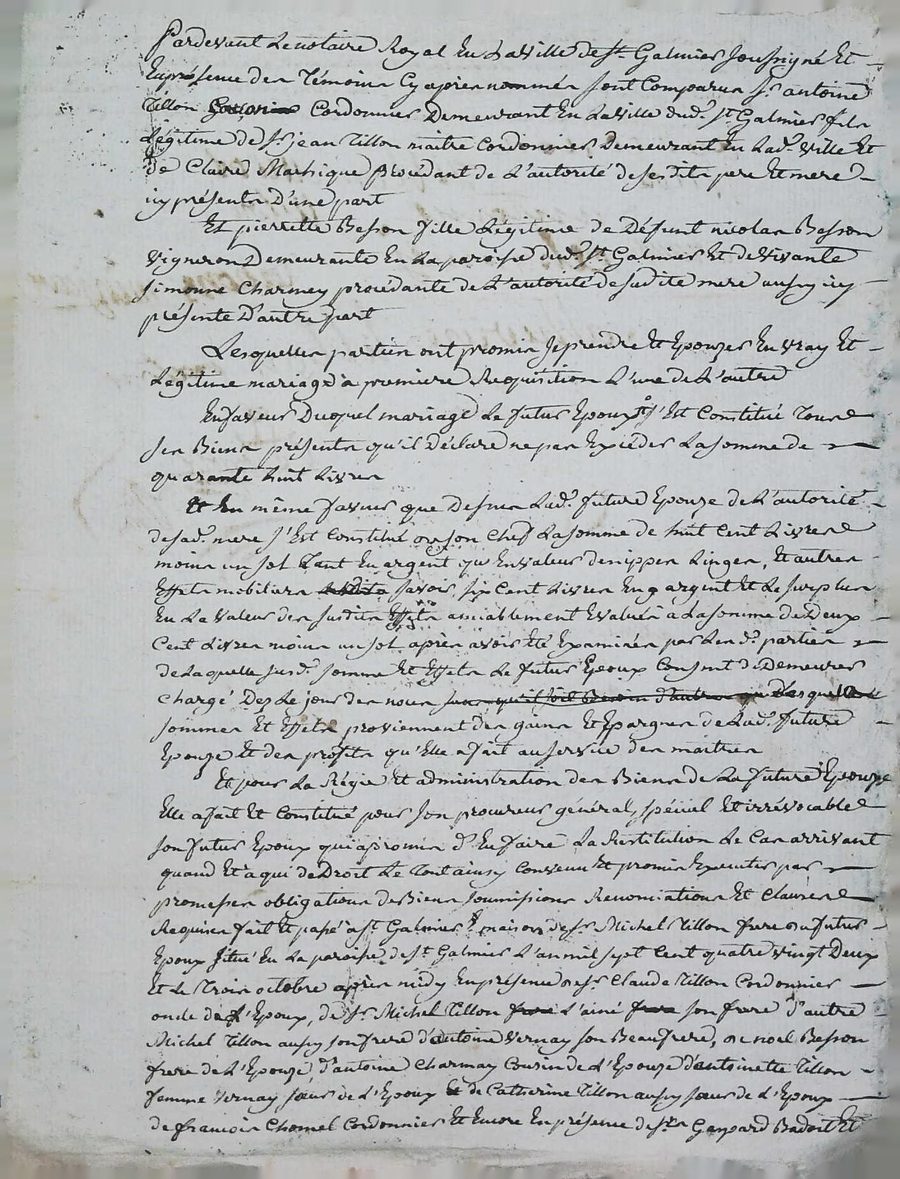 Pardevant Le notaire Royal En La Ville de St. Galmier soussigné Et
En présence des Témoins Cy apres nommés sont Comparus Sr. antoine
Tillon Cordonnier Demeurant En La Ville dud. St Galmier fils
Légitime de Sr. jean Tillon maitre Cordonnier Demeurant En Lad. Ville Et
de Claire Marhique procédant de L'autorité de sesdits pere Et mere
icy présents D'une part
Et pierrette Besson fille Légitime de Défunt nicolas Besson
Vigneron Demeurante En La paroisse dud. St Galmier Et de Vivante
Simonne Charmey procédante de L'autorité de sadite mere aussy icy
présente D'autre part
Lesquelles parties ont promis se prendre Et Epouzer En vray Et
Légitime mariage à premiere Requisition L'une de L'autre
En faveur Duquel mariage Le futur Epoux s'Est Constitué Tous
ses Biens présents qu'il Déclare ne pas Excéder La somme de
quarante huit Livres
Et En même faveur que Dessus Lad. future Epouze de L'autorité
de sad. mere s'Est Constitué En son Chef La somme de huit Cent Livres
moins un sol Tant En argent qu'En valeur de nippes Linges, Et autres
Effets mobiliers savoir six Cent Livres En argent Et Le surplus
En La valeur des susdits Effets amiablement Evalués à La somme de Deux
Cent Livres moins un sol après avoir Eté Examinés par Lesd. parties
de Laquelle susd. somme Et Effets Le futur Epoux Consent de Demeurer
chargé Des Le jour des noces sans qu'il soit Besoin d'autre Desquels
sommes Et Effets proviennent des gains Et Epargnes de Lad. future
Epouze Et des profits qu'Elle a fait au service des maitres
Et pour La Régie Et administration des Biens de La future Epouze
Elle a fait Et Constitué pour son procureur général, spécial Et irrévocable
son futur Epoux qui a promis d'En faire La Restitution Le Cas arrivant
quand Et à qui de Droit Le Tout ainsy Convenu Et promis Executer par
promesses obligations de Biens soumissions Renonciations Et Clauses
Requises fait Et passé a St Galmier maison de Sr Michel Tillon frere du futur
Epoux situé En La paroisse de St Galmier L'an mil sept Cent quatre vingt Deux
Et Le Trois octobre après midy En présence de Sr Claude Tillon Cordonnier
oncle de L'Epoux, de Sr Michel Tillon L'ainé son frere d'autre
Michel Tillon aussy son frere d'antoine Vernay son Beaufrere, de noel Besson
frere de L'Epouze d'antoine Charmay Cousin de L'Epouze d'antoinette Tillon
femme Vernay sœur de L'Epoux de Catherine Tillon aussy sœur de L'Epoux
de francois Chomel Cordonnier Et Encore En présence de Sr Gaspard Badoit Et